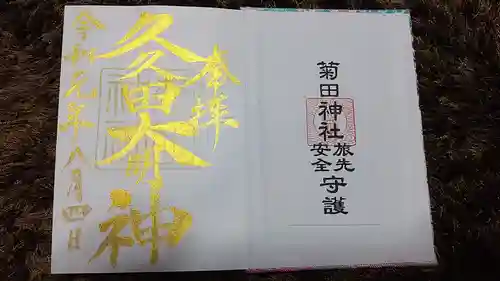 奉拝
久久田大明神
令和元年八月四日
菊田神社
旅先安全
守護